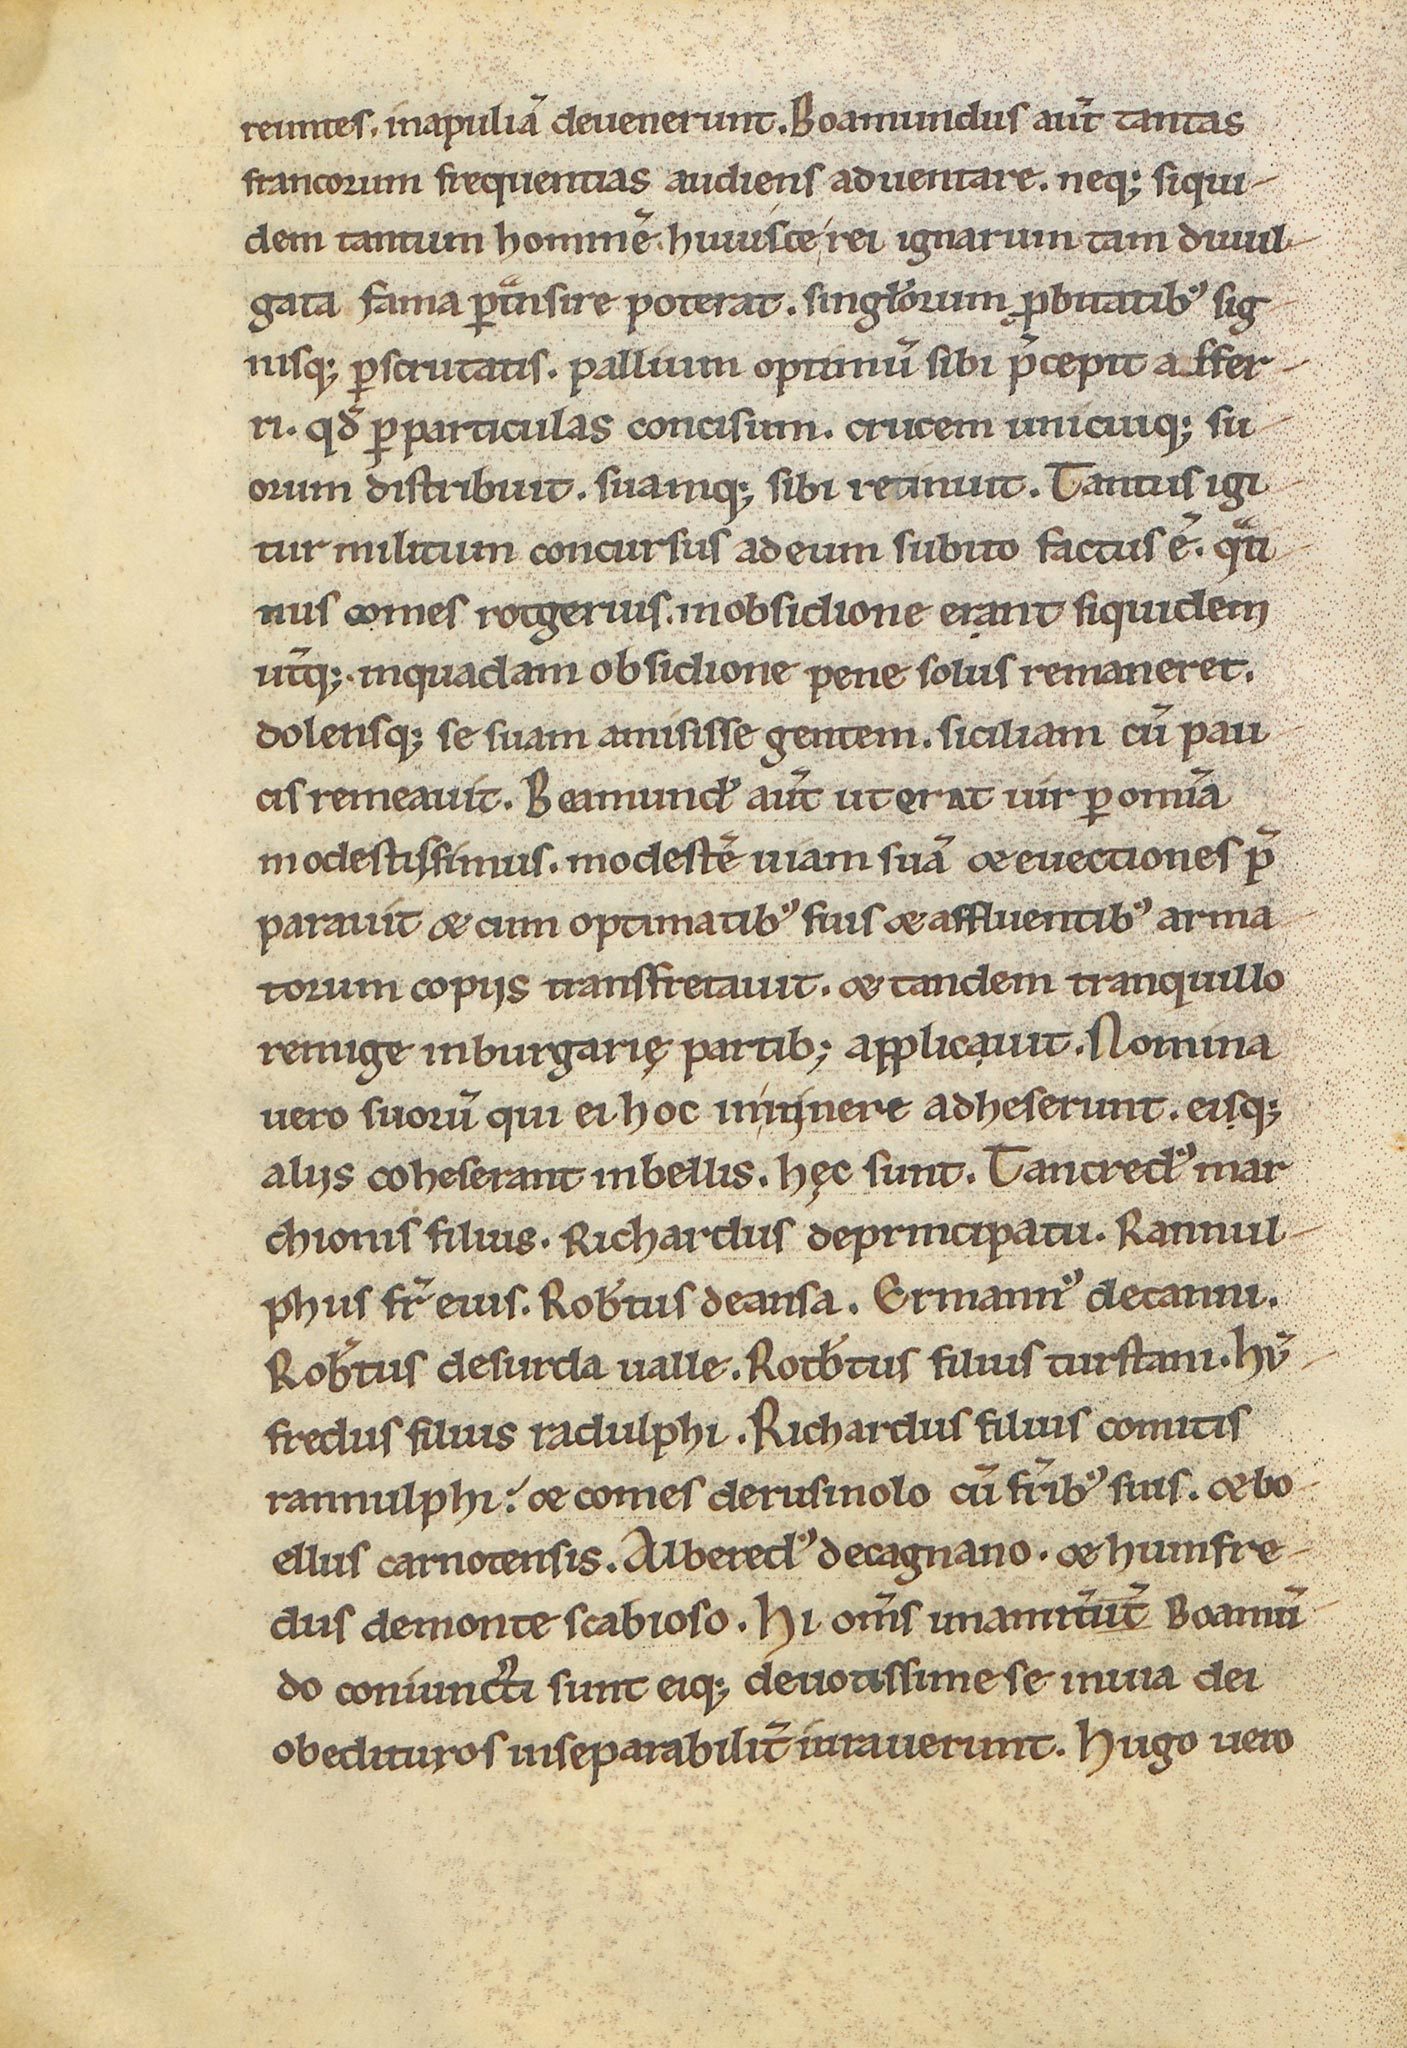 reuntes. inapuliā deuenerunt. Boamundus aut̄ tantas
francorum frequentias audiens aduentare. neq; siqui-
dem tantum hominē huiusce rei ignarum tam diuul-
gata fama p̄tͣnsire poterat. singłorum ꝓbitatibꝰ sig-
nisq; ꝑscrutatis. pallium optimū sibi p̄cepit affer-
ri. qđ ꝑparticulas concisum. crucem unicuiq; su
orum distribuit. suamq; sibi retinuit. Tantus igi
tur militum concursus adeum subito factus ē. qͣti-
nus comes rotgerius. inobsidione erant siquidem
ut̄q; inquadam obsidione pene solus remaneret.
dolensq; se suam amisisse gentem. siciliam cū pau
cis remeauit. Boamundꝰ aut̄ ut erat uir ꝑ omīa
modestissimus. modestē uiam suā & euectiones p̄
parauit & cum optimatibꝰ suis & affluentibꝰ arma
torum copijs transfretauit. & tandem tranquillo
remige inburgarię partib; applicauit. Nomina
uero suorū qui ei hoc itinere adheserunt. eisq;
alijs coheserant inbellis. hęc sunt. Tancredꝰ mar
chionis filius. Richardus deprincipatu. Rannul-
phus fr̄ eius. Rob̄tus deansa. Ermannꝰ decanni.
Rob̄tus desurda ualle. Rotb̄tus filius turstani. hū-
fredus filius radulphi. Richardus filius comitis
rannulphi: & comes derusinolo cū fr̄ibꝰ suis. & bo-
ellus carnotensis. Alberedꝰ decagnano. & humfre-
dus demonte scabioso. Hi om̄s unanimit̄ Boamū-
do coniuncti sunt eiq; deuotissime se inuia dei
obedituros inseparabilit̄ iurauerunt. Hugo uero